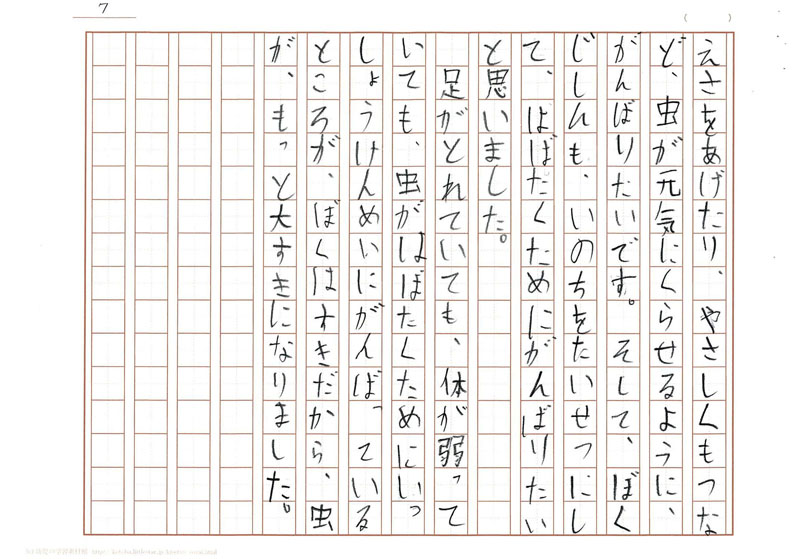 7
(　)
えさをあげたり、やさしくもつな
ど、虫が元気にくらせるように、
がんばりたいです。そして、ぼく
じしんも、いのちをたいせつにし
て、はばたくためにがんばりたい
と思いました。
足がとれていても、体が弱って
いても、虫がはばたくためにいっ
しょうけんめいにがんばっている
ところが、ぼくはすきだから、虫
が、もっと大すきになりました。